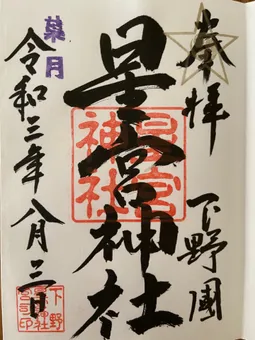 奉拝
下野國
星宮神社
星宮
神社
葉月
令和三年八月三日